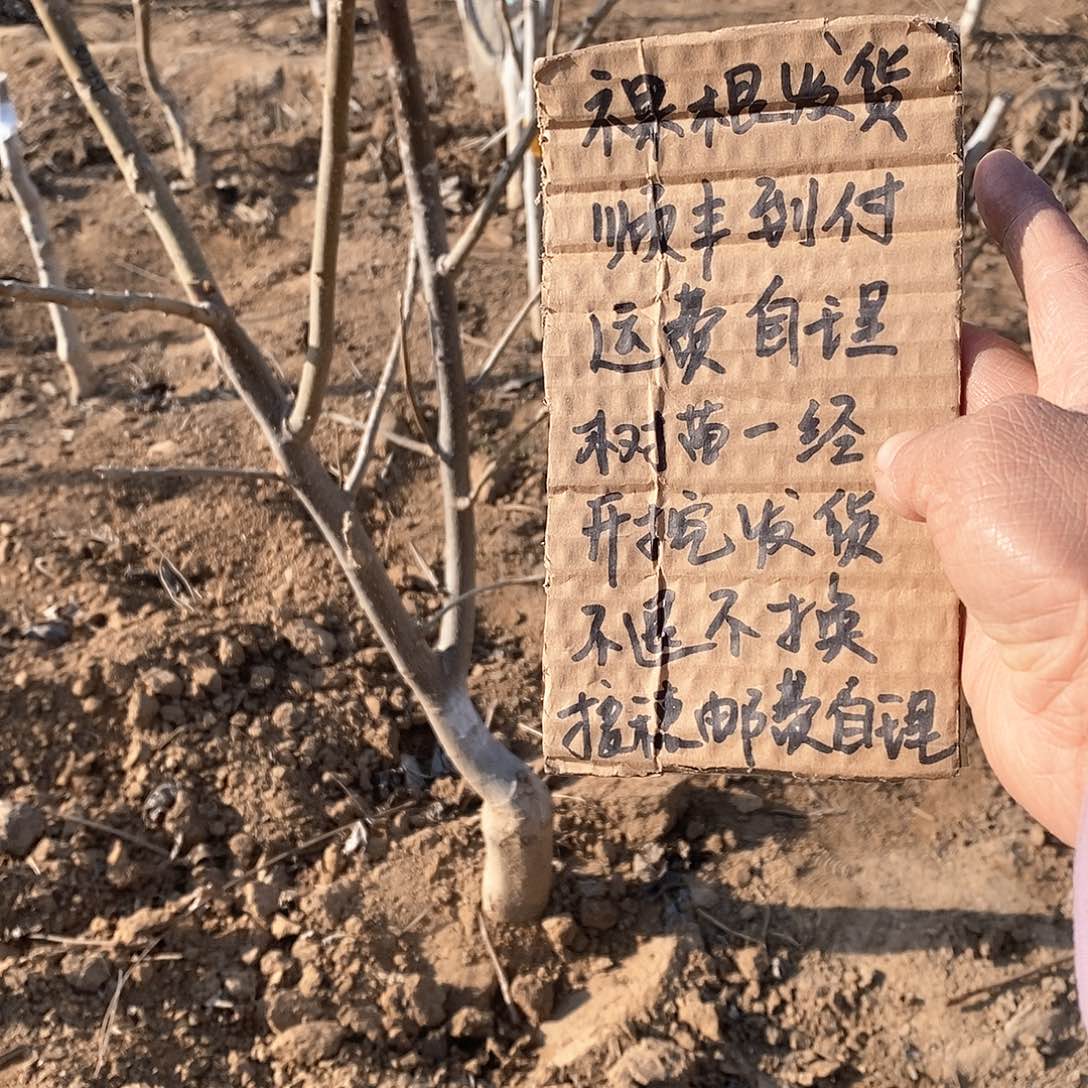 裸根发货
顺丰到付
运费自理
树苗一经
开挖发货
不退不换
接穗邮费自理